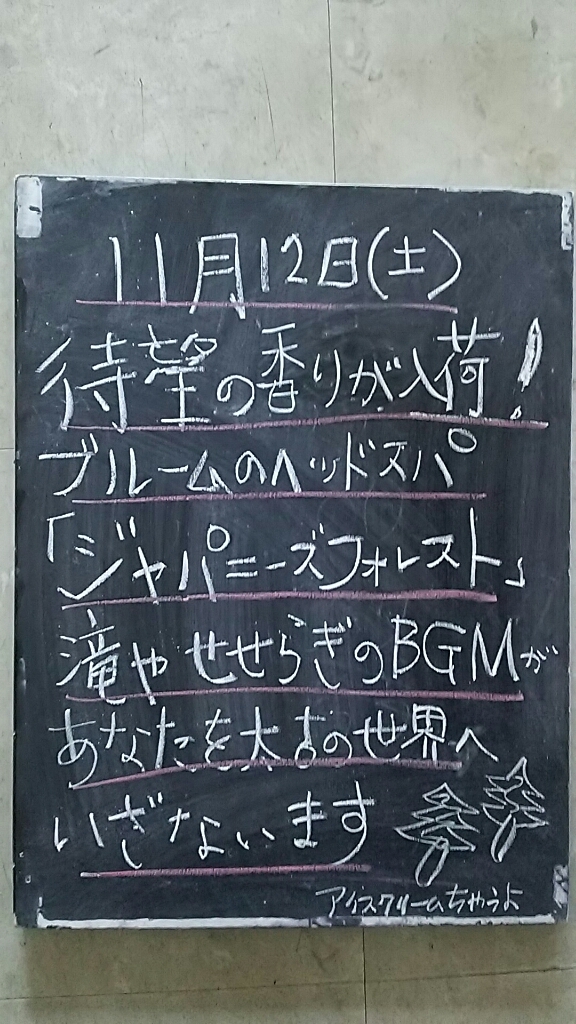 11月12日(土)
待望の香りが入荷!
ブルームのヘッドスパ
「ジャパニーズフォレスト」
滝やせせらぎのBGMが
あなたを太古の世界へ
いざないます
アイスクリームちゃうよ